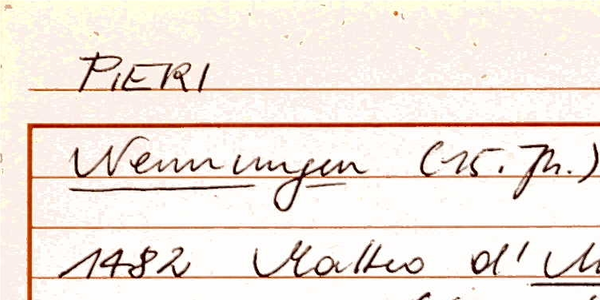 PIERI
Nennungen (15. Jh.)
1482 Matteo d'